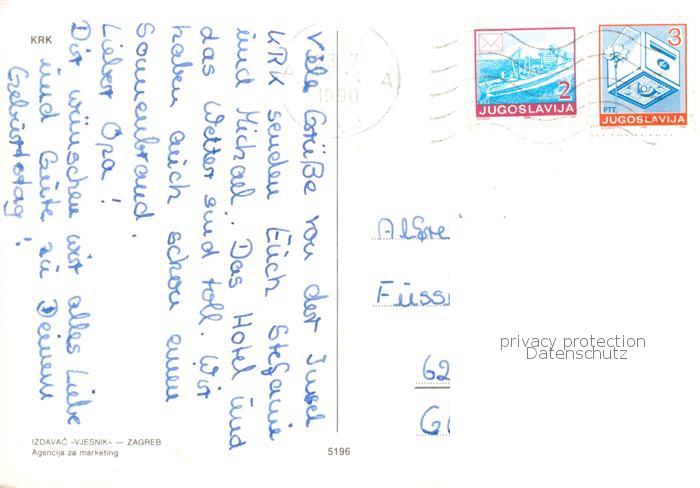 KRK
Viele Grüße von der Insel
KRK senden Euch Stefanie
und Michael. Das Hotel und
das Wetter sind toll. Wir
haben auch schon einen
Sonnenbrand.
Lieber Opa!
Dir wünschen wir alles Liebe
und Gute zu Deinem
Geburtstag!
IZDAVAČ »VJESNIK« — ZAGREB
Agencija za marketing
5196
1990
A
2
PTT
JUGOSLAVIJA
3
PTT
JUGOSLAVIJA
Alfre
Füss
62
privacy protection
Datenschutz